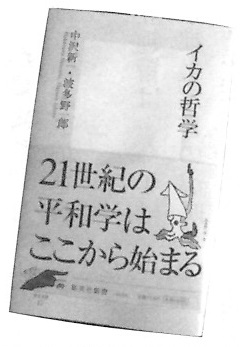 イカの哲学
中沢新一・波多野一郎
21世紀の
平和学は
ここから始まる
集英社新書